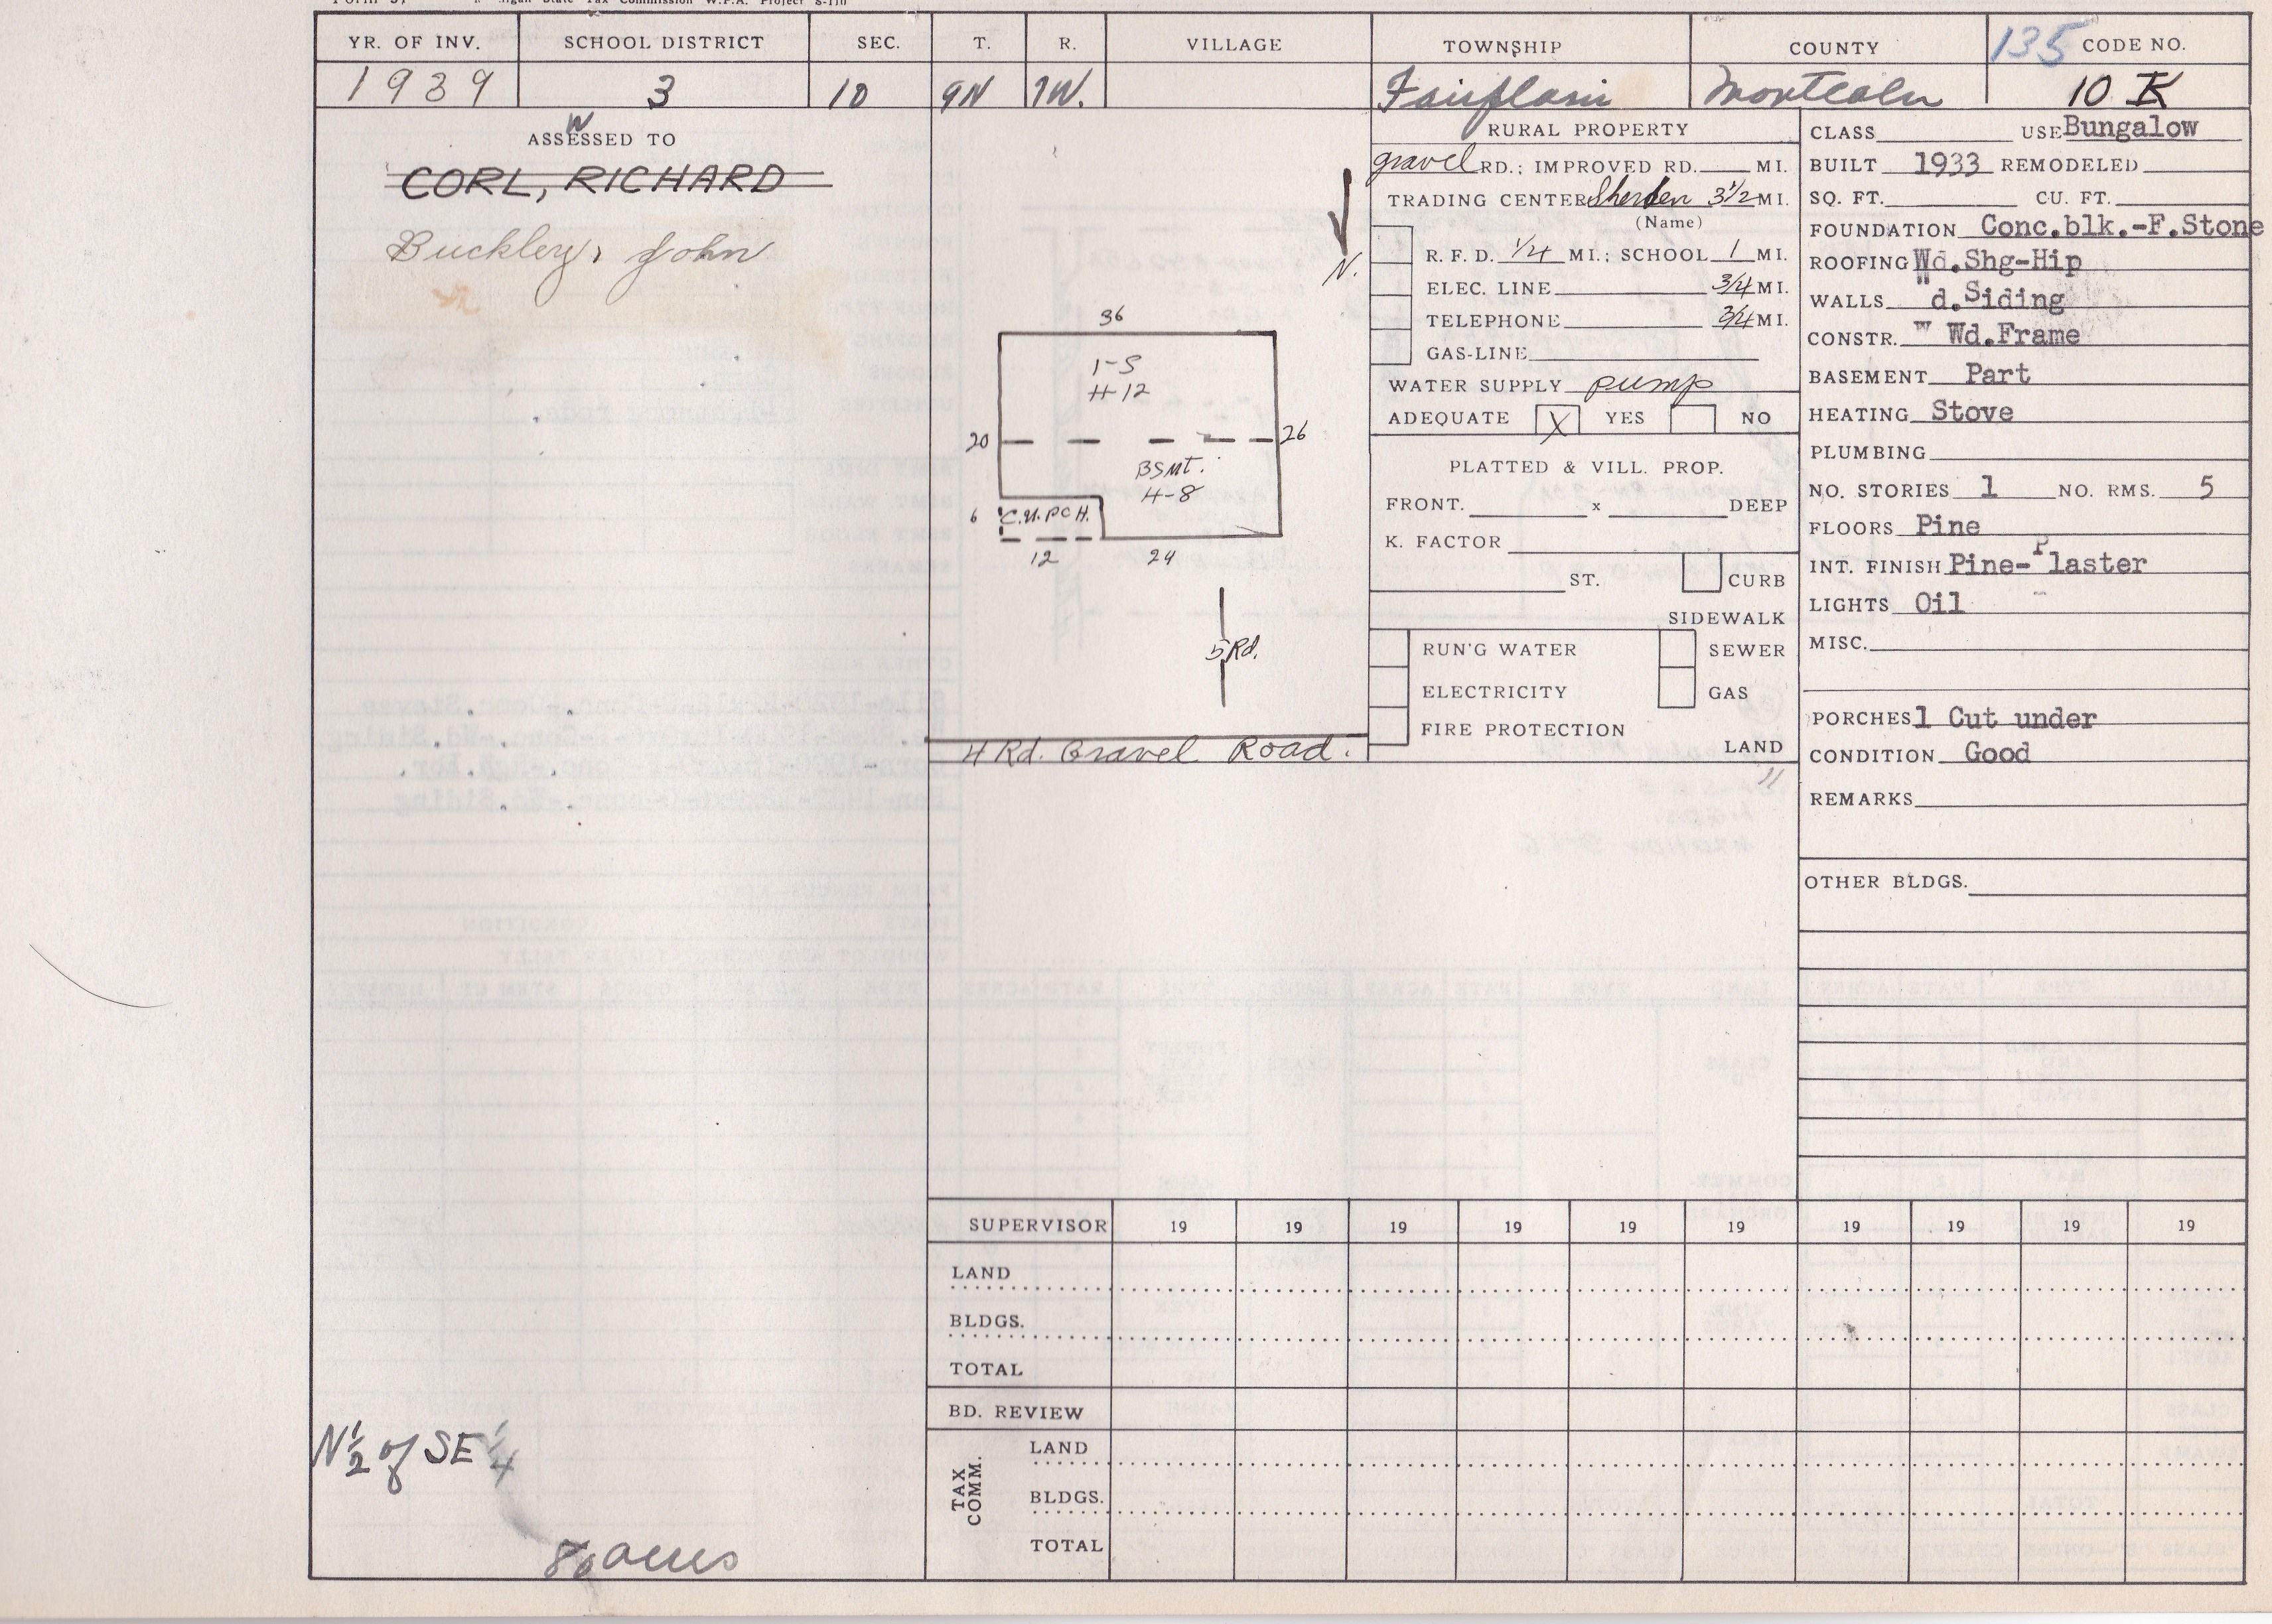 State Tax Commission W.P.A. Project S-170
YR. OF INV. SCHOOL DISTRICT SEC. T. R. VILLAGE TOWNSHIP COUNTY 135 CODE NO.
1939 3 10 9N 7W. Fairplain Montcalm 10 K
ASSESSED TO
W
CORL, RICHARD
Buckley, John
N 1/2 of SE 1/4
80 acres
N.
36
1-S
H-12
20
26
BSMT.
H-8
6
C.U.PCH.
12
24
5 Rd.
4 Rd. Gravel Road.
RURAL PROPERTY
gravel RD.; IMPROVED RD. MI.
TRADING CENTER Sheriden 3 1/2 MI.
(Name)
R. F. D. 1/4 MI.; SCHOOL 1 MI.
ELEC. LINE 3/4 MI.
TELEPHONE 3/4 MI.
GAS-LINE
WATER SUPPLY pump
ADEQUATE X YES NO
PLATTED & VILL. PROP.
FRONT. x DEEP
K. FACTOR
ST. CURB
SIDEWALK
RUN'G WATER SEWER
ELECTRICITY GAS
FIRE PROTECTION
LAND
CLASS USE Bungalow
BUILT 1933 REMODELED
SQ. FT. CU. FT.
FOUNDATION Conc.blk.-F.Stone
ROOFING Wd.Shg-Hip
WALLS Wd.Siding
CONSTR. Wd.Frame
BASEMENT Part
HEATING Stove
PLUMBING
NO. STORIES 1 NO. RMS. 5
FLOORS Pine
INT. FINISH Pine-Plaster
LIGHTS Oil
MISC.
PORCHES 1 Cut under
CONDITION Good
REMARKS
OTHER BLDGS.
SUPERVISOR 19 19 19 19 19 19 19 19 19 19
LAND
BLDGS.
TOTAL
BD. REVIEW
TAX COMM.
LAND
BLDGS.
TOTAL